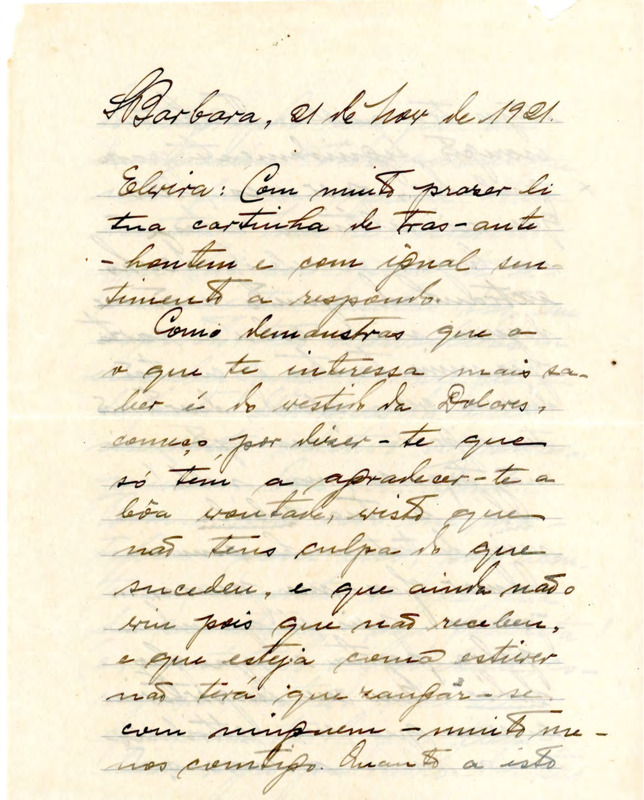 S Barbara, 21 de Nov de 1921.
Elvira: Com muito prazer li
tua cartinha de tras-ante
-hontem e com igual sen-
timento a respondo.
Como demonstras que a
o que te interessa mais sa-
ber é do vestido da Dolores,
começo, por dizer-te que
só tem a agradecer-te a
bôa vontade, visto que
não tens culpa do que
succedeu, e que ainda não o
viu pois que não recebeu,
e que esteja como estiver
não terá que zangar-se
com ninguem - muito me-
nos comtigo. Quanto a isto